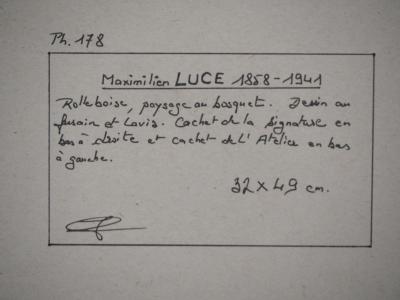 Ph. 178
Maximilien LUCE 1858-1941
Rolleboise, paysage au bosquet. Dessin au
fusain et Lavis. Cachet de la signature en
bas à droite et cachet de l'Atelier en bas
à gauche.
32 x 49 cm.